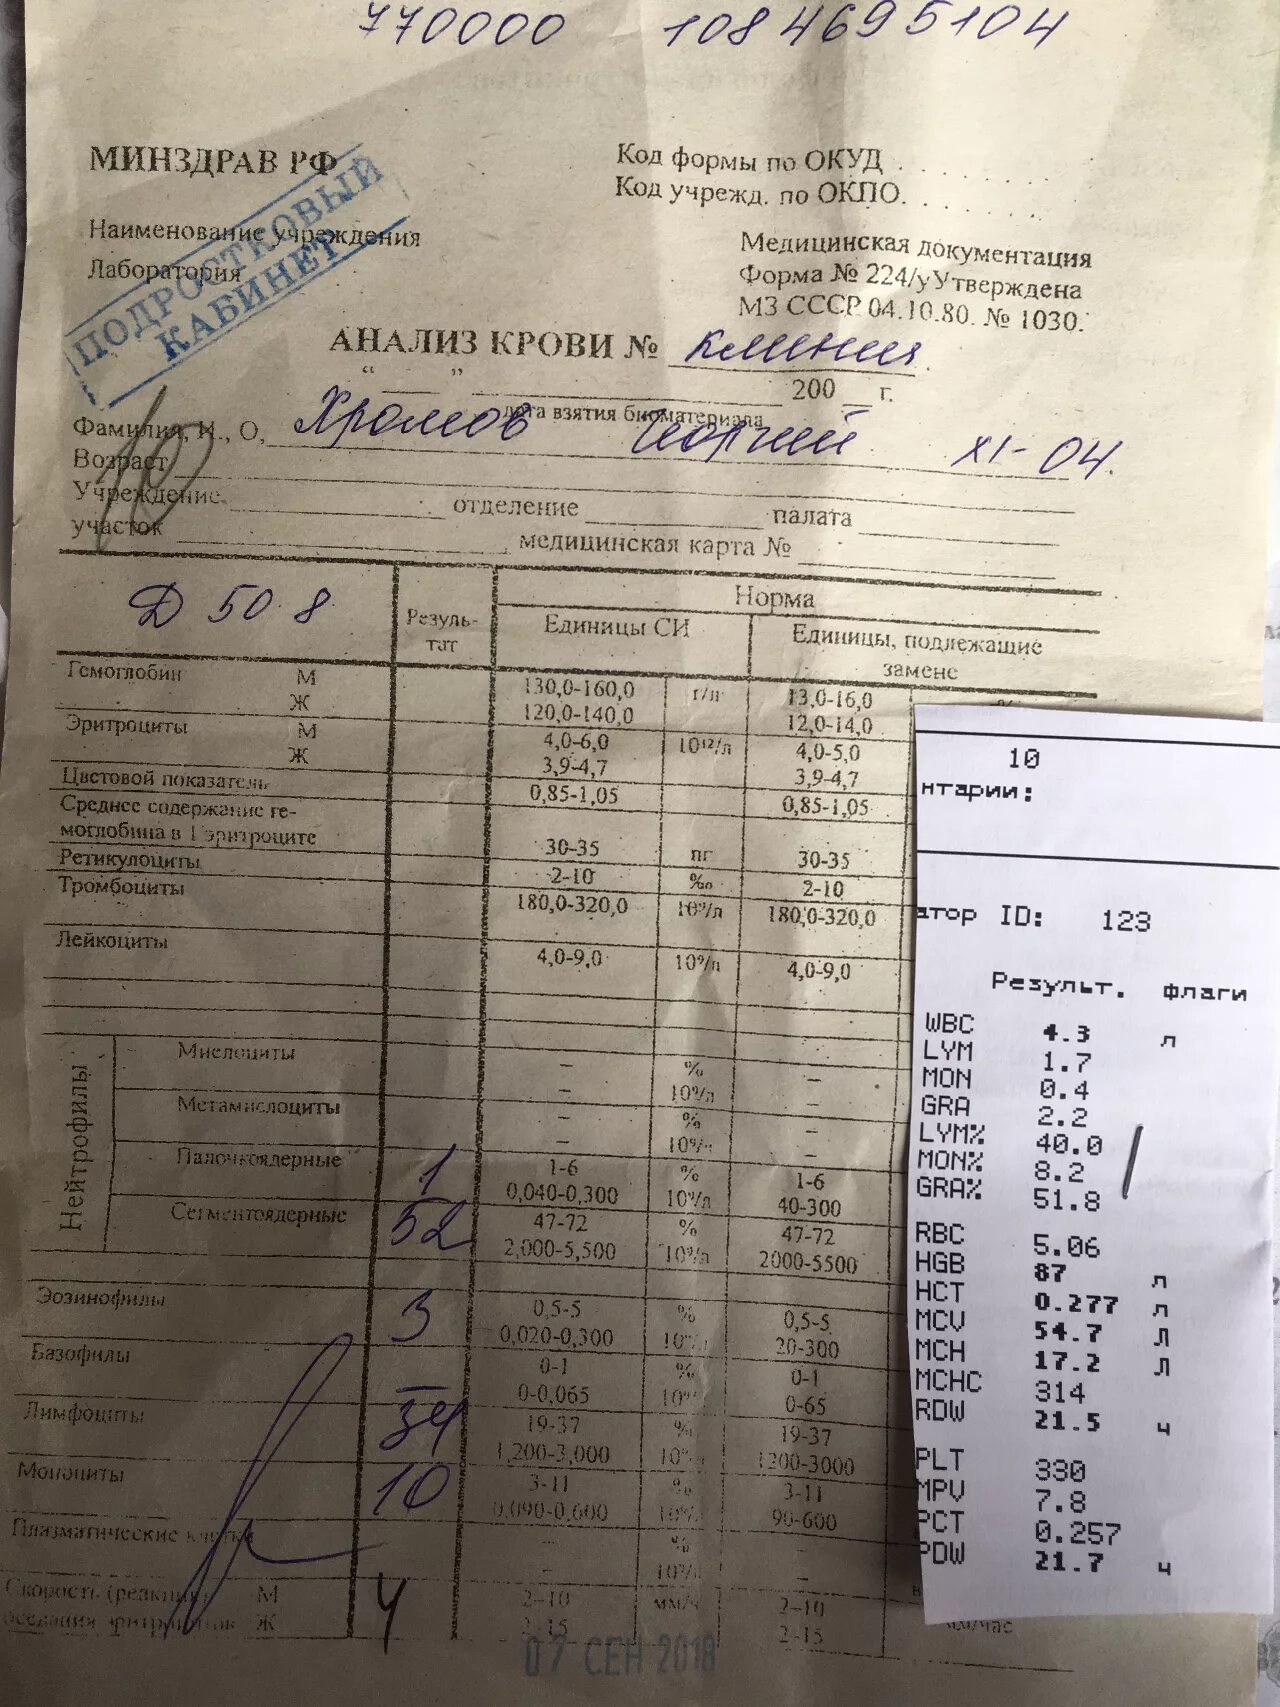 770000 1084695104
МИНЗДРАВ РФ
Код формы по ОКУД . . . . . . . .
Код учрежд. по ОКПО. . . . . . . .
ПОДРОСТКОВЫЙ
КАБИНЕТ
Наименование учреждения
Лаборатория
Медицинская документация
Форма № 224/у Утверждена
МЗ СССР 04.10.80. № 1030.
АНАЛИЗ КРОВИ №
“ ” 200 г.
дата взятия биоматериала
Фамилия, И., О, Хромов Георгий XI-04.
Возраст
Учреждение отделение палата
участок медицинская карта №
Д 50 8
Резуль-
тат
Норма
Единицы СИ
Единицы, подлежащие
замене
Гемоглобин М 130,0-160,0 г/л 13,0-16,0
Ж 120,0-140,0 12,0-14,0
Эритроциты М 4,0-6,0 10¹²/л 4,0-5,0
Ж 3,9-4,7 3,9-4,7
Цветовой показатель 0,85-1,05 0,85-1,05
Среднее содержание ге-
моглобина в 1 эритроците 30-35 пг 30-35
Ретикулоциты 2-10 ‰ 2-10
Тромбоциты 180,0-320,0 10⁹/л 180,0-320,0
Лейкоциты 4,0-9,0 10⁹/л 4,0-9,0
Нейтрофилы
Миелоциты – % –
– 10⁹/л –
Метамиелоциты – % –
– 10⁹/л –
Палочкоядерные 1 1-6 % 1-6
0,040-0,300 10⁹/л 40-300
Сегментоядерные 52 47-72 % 47-72
2,000-5,500 10⁹/л 2000-5500
Эозинофилы 3 0,5-5 % 0,5-5
0,020-0,300 10⁹/л 20-300
Базофилы – 0-1 % 0-1
0-0,065 10⁹/л 0-65
Лимфоциты 34 19-37 % 19-37
1,200-3,000 10⁹/л 1200-3000
Моноциты 10 3-11 % 3-11
0,090-0,600 10⁹/л 90-600
Плазматические клетки – % –
– 10⁹/л –
Скорость (реакция) М 4 2-10 мм/ч 2-10
оседания эритроцитов Ж 2-15 2-15 мм/час
07 СЕН 2018
10
нтарии:
атор ID: 123
Результ. флаги
WBC 4.3 л
LYM 1.7
MON 0.4
GRA 2.2
LYM% 40.0
MON% 8.2
GRA% 51.8
RBC 5.06
HGB 87 л
HCT 0.277 л
MCV 54.7 л
MCH 17.2 л
MCHC 314
RDW 21.5 ч
PLT 330
MPV 7.8
PCT 0.257
PDW 21.7 ч